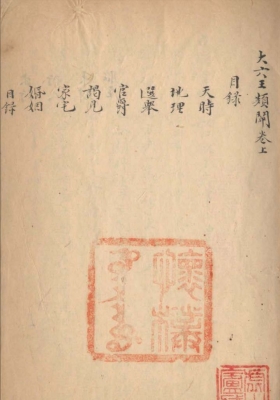 大六壬類闡卷上
目錄
天時
地理
選舉
官爵
謁見
家宅
婚姻
目錄